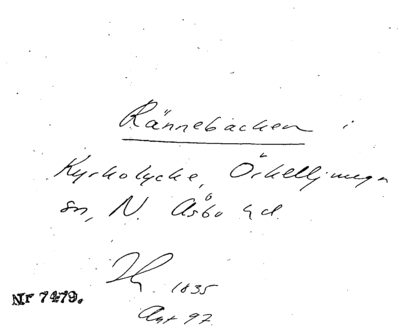 Rännebacken i
Kyrkolycke, Örkelljunga
sn, N. Åsbo hd.
1835
Nr 7479.
Avt 97